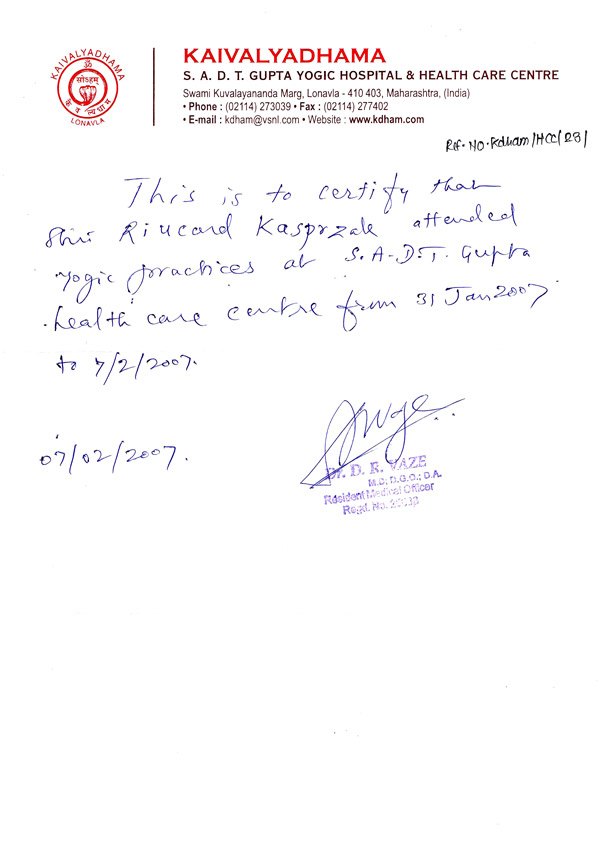 KAIVALYADHAMA
ॐ
सोऽहम्
कैवल्यधाम
LONAVLA
KAIVALYADHAMA
S. A. D. T. GUPTA YOGIC HOSPITAL & HEALTH CARE CENTRE
Swami Kuvalayananda Marg, Lonavla - 410 403, Maharashtra, (India)
• Phone : (02114) 273039 • Fax : (02114) 277402
• E-mail : kdham@vsnl.com • Website : www.kdham.com
Ref. No. Kdham/HCC/28/
This is to certify that
Shri Riucard Kasprzak attended
yogic practices at S.A.D.T. Gupta
health care centre from 31 Jan 2007
to 7/2/2007.
07/02/2007.
Dr. D. R. VAZE
M.C; D.G.O.; C.A.
Resident Medical Officer
Regd. No.